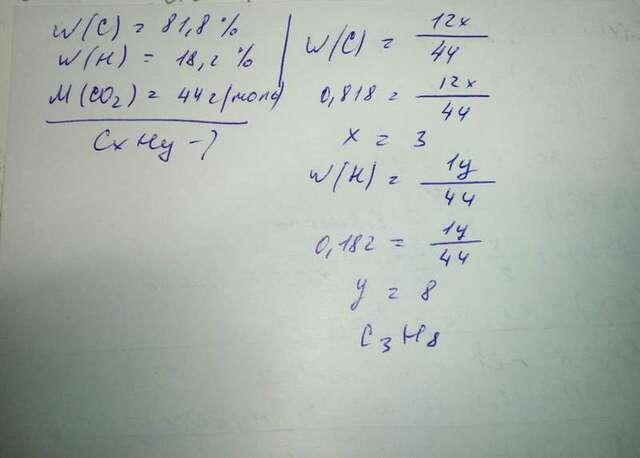 W(C) = 81,8 %
W(H) = 18,2 %
M(CO₂) = 44 г/моль
CxHy - ?
W(C) = 12x/44
0,818 = 12x/44
x = 3
W(H) = 1y/44
0,182 = 1y/44
y = 8
C₃H₈